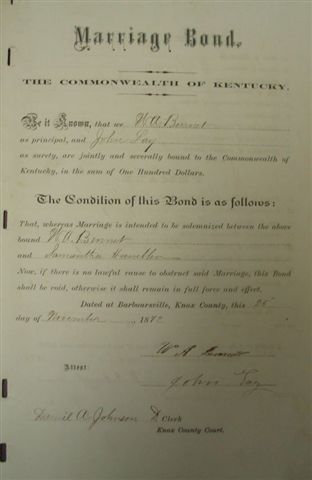 Marriage Bond.
THE COMMONWEALTH OF KENTUCKY.
Be it Known, that we W. A. Bennet
as principal, and John Lay
as surety, are jointly and severally bound to the Commonwealth of
Kentucky, in the sum of One Hundred Dollars.
The Condition of this Bond is as follows:
That, whereas Marriage is intended to be solemnized between the above
bound W. A. Bennet
and Samantha
Now, if there is no lawful cause to obstruct said Marriage, this Bond
shall be void, otherwise it shall remain in full force and effect.
Dated at Barboursville, Knox County, this 25
day of November 187
Wm A Bennett
Attest:
John Lay
A. Johnson D Clerk
Knox County Court.